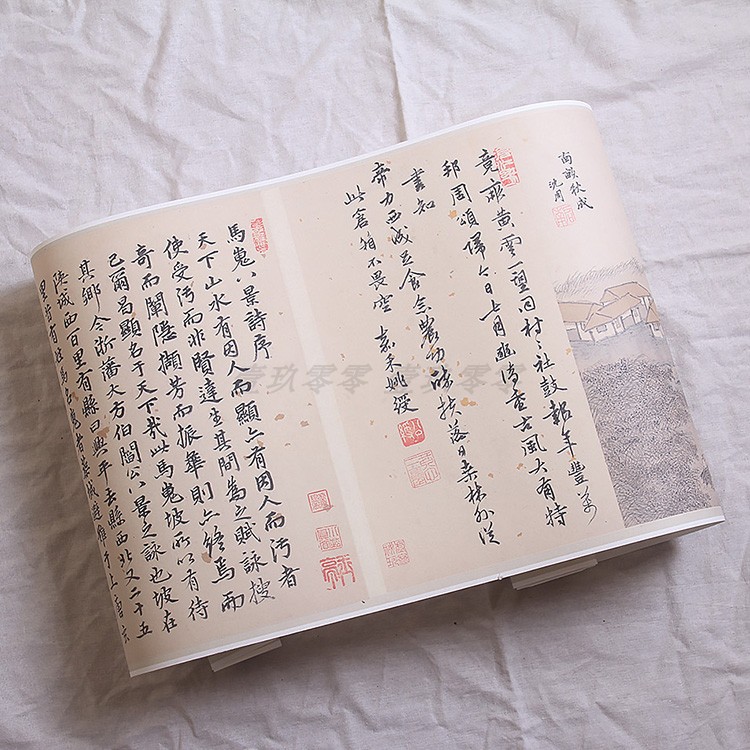 南畝秋成
沈周
竟畝黃雲一望同村〻社鼓報年豐萬
邦周頌歸今日七月豳詩重古風大有特
書知
帝力西成足食念農功醉扶落日桑林外從
此倉箱不畏空 嘉禾姚綬
馬嵬八景詩序
天下山水有因人而顯亦有因人而污者
使受污而非賢達生其間為之賦詠搜
奇而闡隱擷芳而振華則亦終焉而
已爾曷顯名于天下哉此馬嵬坡所以有待
其鄉今浙藩大方伯閻公八景之詠也坡在
陝城西百里有縣曰興平去縣西北又二十五
里許有
壹玖零零 壹玖零零